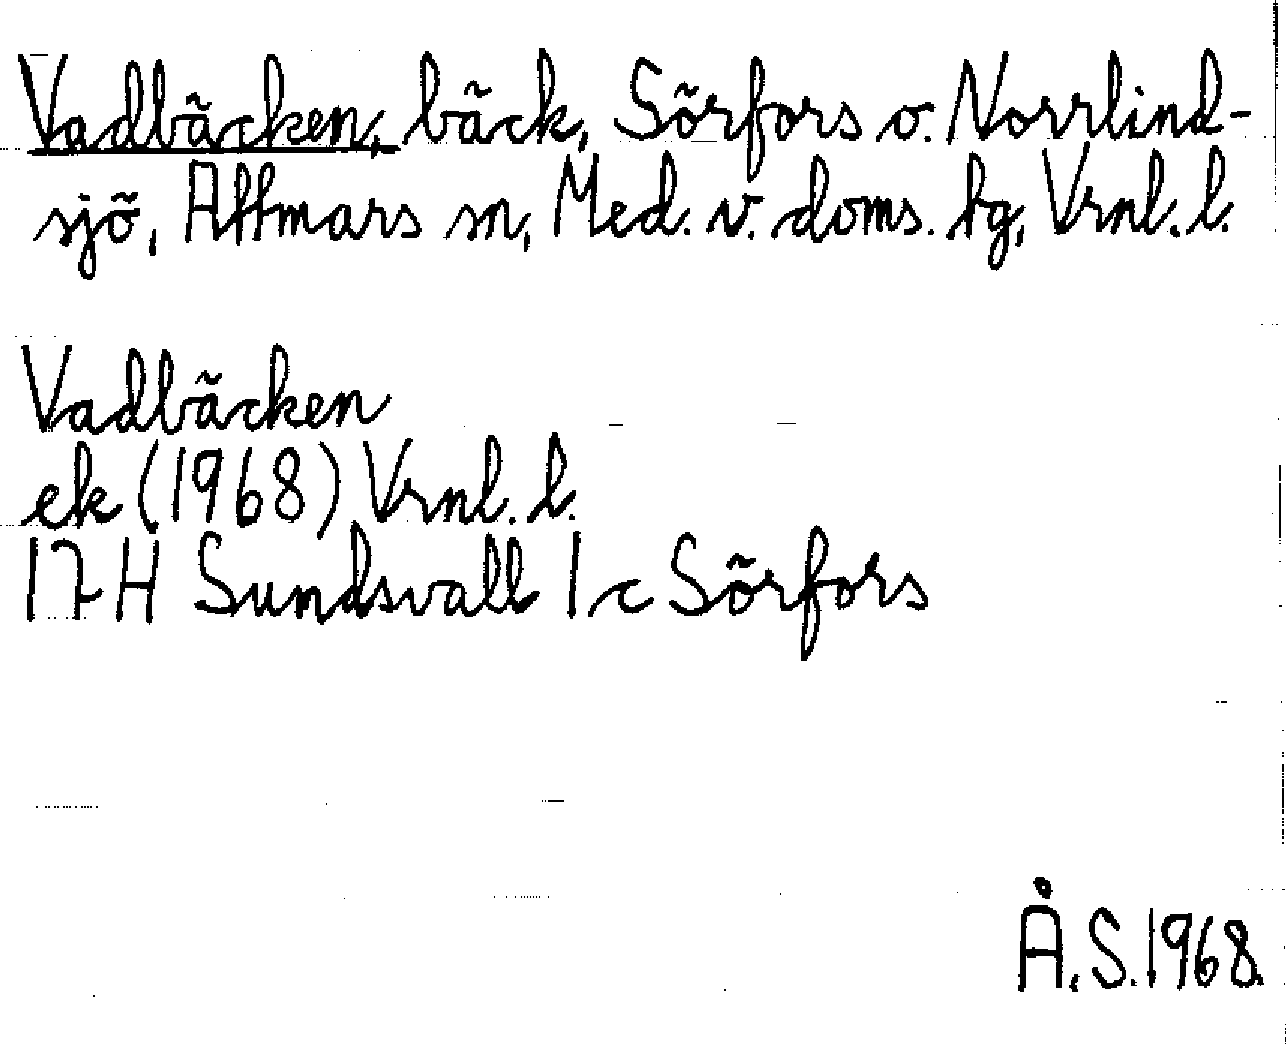 Vadbäcken, bäck, Sörfors o. Norrlind-
sjö, Attmars sn, Med. v. doms. tg, Vrnl. l.
Vadbäcken
ek (1968) Vrnl. l.
17 H Sundsvall 1 c Sörfors
Å. S. 1968.